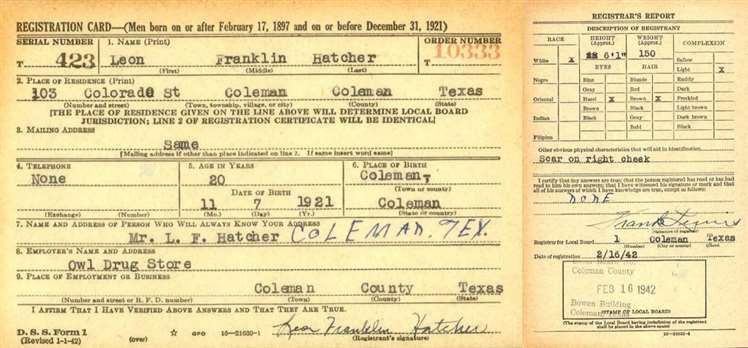 REGISTRATION CARD—(Men born on or after February 17, 1897 and on or before December 31, 1921)
SERIAL NUMBER 1. NAME (Print) ORDER NUMBER
T 423 Leon Franklin Hatcher T 10333
(First) (Middle) (Last)
2. PLACE OF RESIDENCE (Print)
103 Colorado St Coleman Coleman Texas
(Number and street) (Town, township, village, or city) (County) (State)
[THE PLACE OF RESIDENCE GIVEN ON THE LINE ABOVE WILL DETERMINE LOCAL BOARD
JURISDICTION; LINE 2 OF REGISTRATION CERTIFICATE WILL BE IDENTICAL]
3. MAILING ADDRESS
Same
[Mailing address if other than place indicated on line 2. If same insert word same]
4. TELEPHONE 5. AGE IN YEARS 6. PLACE OF BIRTH
None 20 Coleman
DATE OF BIRTH (Town or county)
11 7 1921 Coleman
(Exchange) (Number) (Mo.) (Day) (Yr.) (State or country)
7. NAME AND ADDRESS OF PERSON WHO WILL ALWAYS KNOW YOUR ADDRESS
Mr. L. F. Hatcher COLEMAN. TEX.
8. EMPLOYER'S NAME AND ADDRESS
Owl Drug Store
9. PLACE OF EMPLOYMENT OR BUSINESS
Coleman County Texas
(Number and street or R. F. D. number) (Town) (County) (State)
I AFFIRM THAT I HAVE VERIFIED ABOVE ANSWERS AND THAT THEY ARE TRUE.
D. S. S. Form 1
(Revised 1-1-42) (over) GPO 16—21630-1 Leon Franklin Hatcher
(Registrant's signature)
REGISTRAR'S REPORT
DESCRIPTION OF REGISTRANT
RACE HEIGHT (Approx.) WEIGHT (Approx.) COMPLEXION
White X 6'1" 150 Sallow
EYES HAIR Light X
Negro Blue Blonde Ruddy
Gray Red Dark
Oriental Hazel X Brown X Freckled
Brown Black Light brown
Indian Black Gray Dark brown
Bald Black
Filipino
Other obvious physical characteristics that will aid in identification
Scar on right cheek
I certify that my answers are true; that the person registered has read or has had
read to him his own answers; that I have witnessed his signature or mark and that
all of his answers of which I have knowledge are true, except as follows:
NONE
Frank
(Signature of registrar)
Registrar for Local Board 1 Coleman Texas
(Number) (City or county) (State)
Date of registration 2/16/42
Coleman County
FEB 16 1942
Bowen Building
Coleman
(STAMP OF LOCAL BOARD)
(The stamp of the Local Board having jurisdiction of the registrant
shall be placed in the above space)